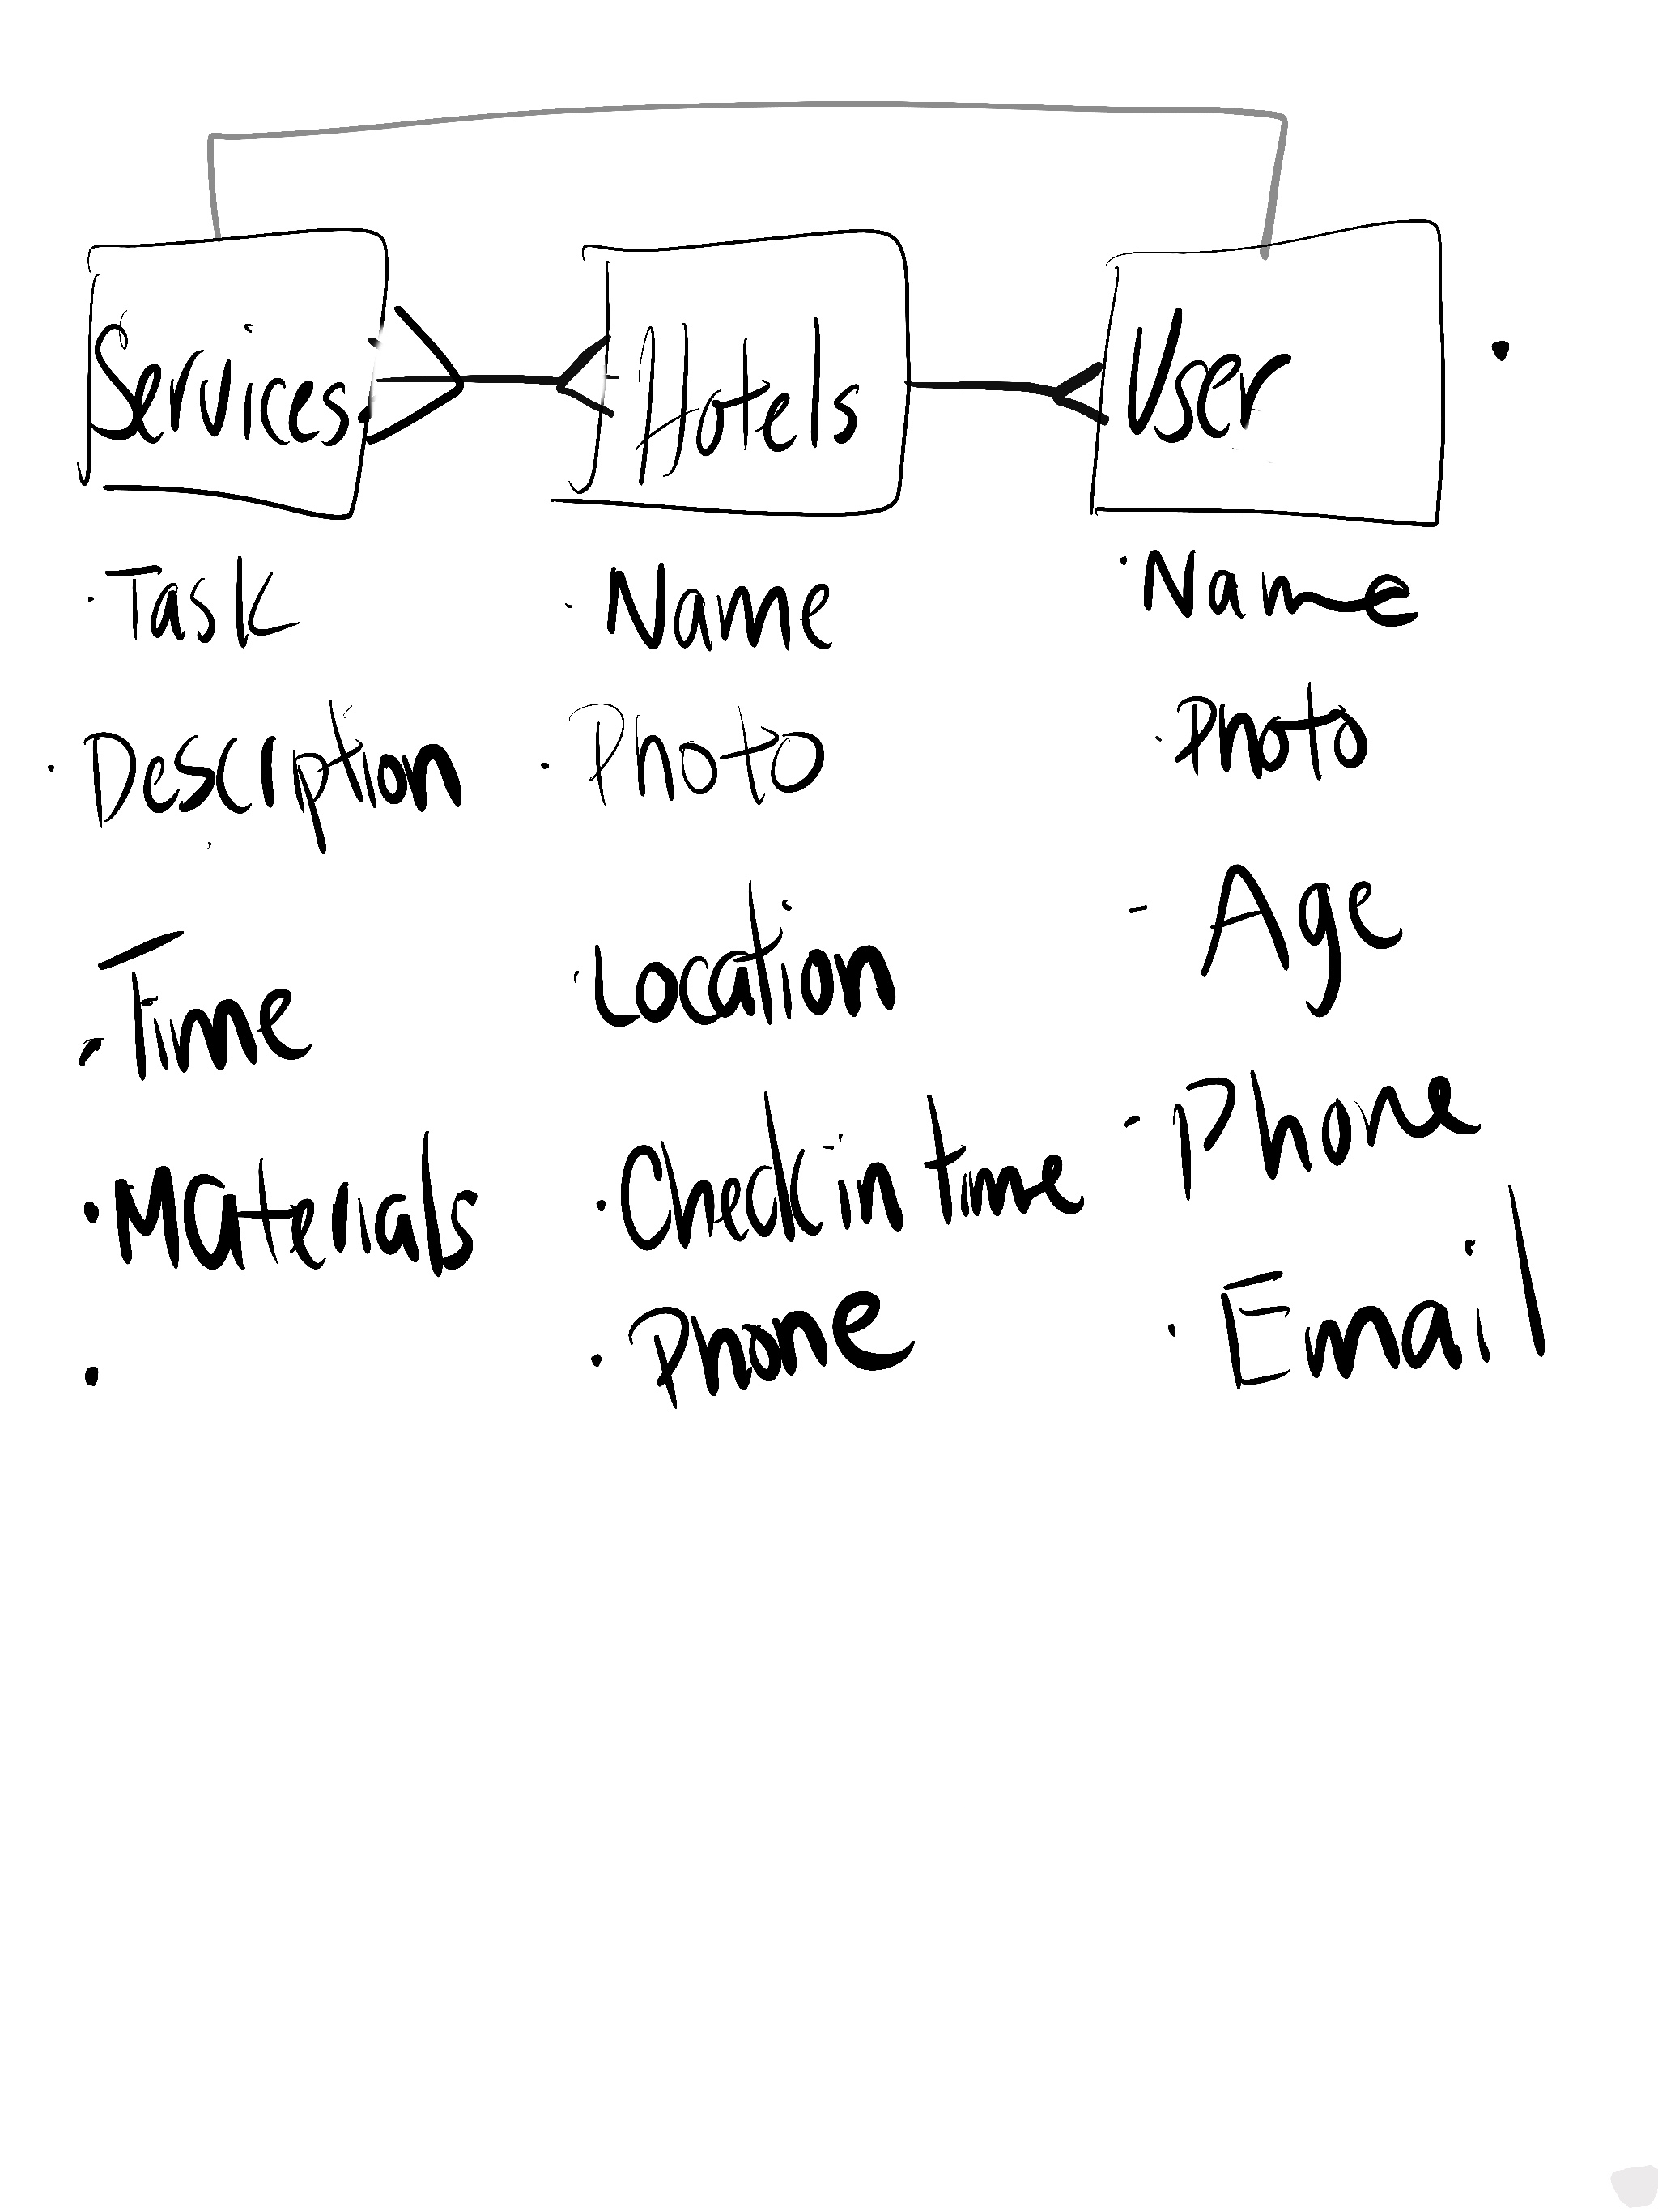 Services
Hotels
User
· Task
· Description
· Time
· Materials
·
· Name
· Photo
· Location
· Check in time
· Phone
· Name
· Photo
- Age
- Phone
· Email